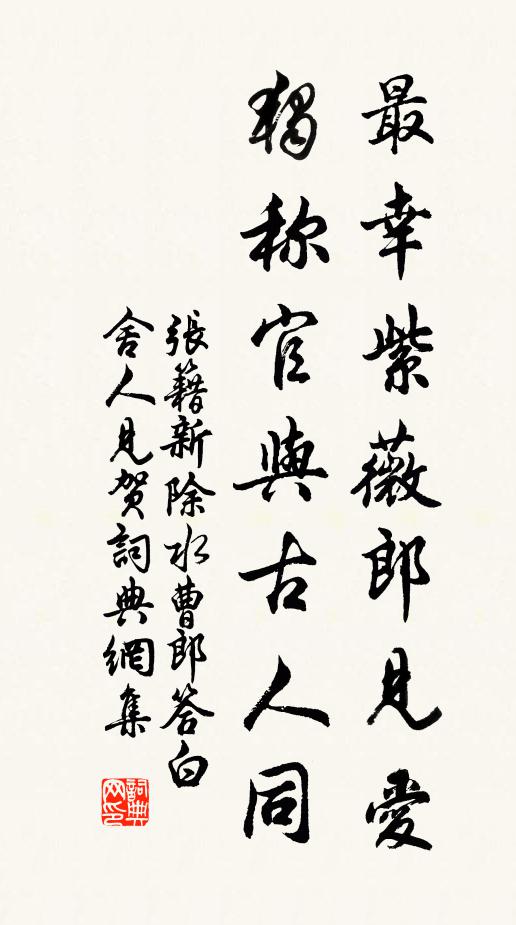 最幸紫薇郎見愛
獨称官與古人同
張籍新除水曹郎答白
舍人見贺詞典網集
詞典网印